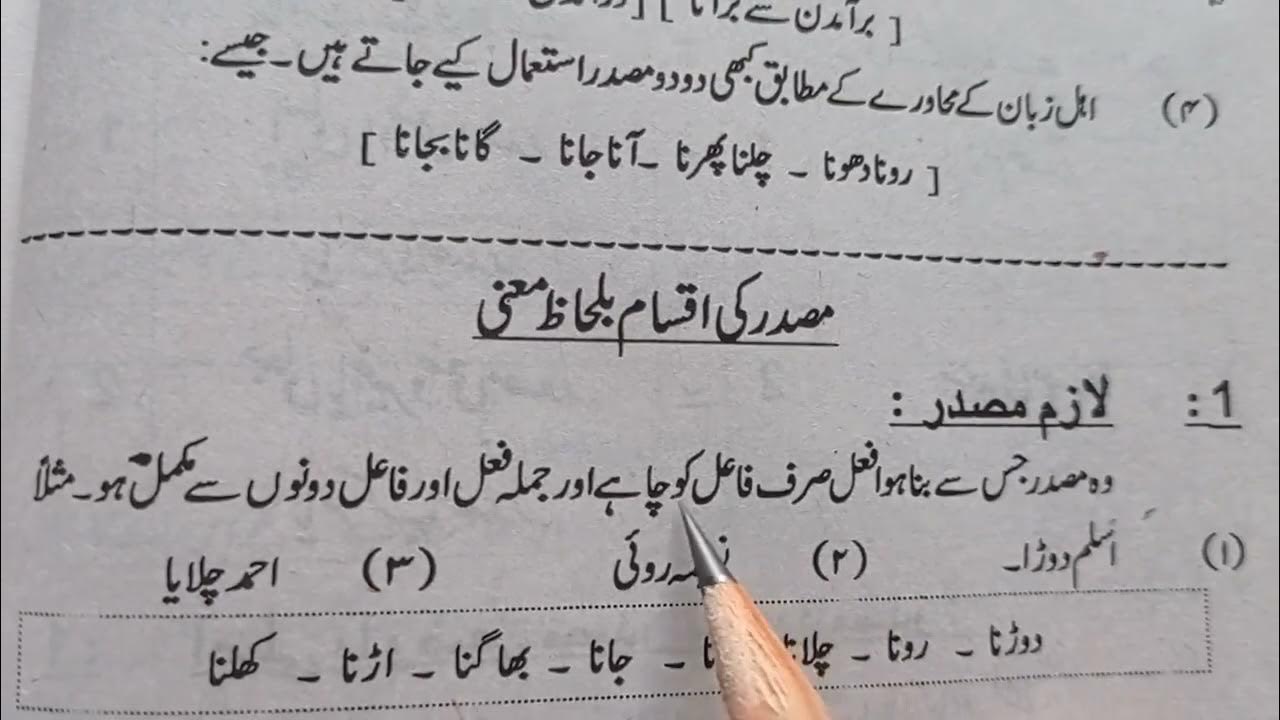 [ برآمدن سے برآنا ] [
(۴) اہل زبان کے محاورے کے مطابق کبھی دو دو مصدر استعمال کیے جاتے ہیں۔ جیسے:
[ رونا دھونا ۔ چلنا پھرنا ۔ آنا جانا ۔ گانا بجانا ]
مصدر کی اقسام بلحاظ معنی
1: لازم مصدر :
وہ مصدر جس سے بنا ہوا فعل صرف فاعل کو چاہے اور جملہ فعل اور فاعل دونوں سے مکمل ہو۔ مثلاً
(۱) اسلم دوڑا۔ (۲) روئی (۳) احمد چلایا
دوڑنا ۔ رونا ۔ ۔ جانا ۔ بھاگنا ۔ اڑنا ۔ کھلنا